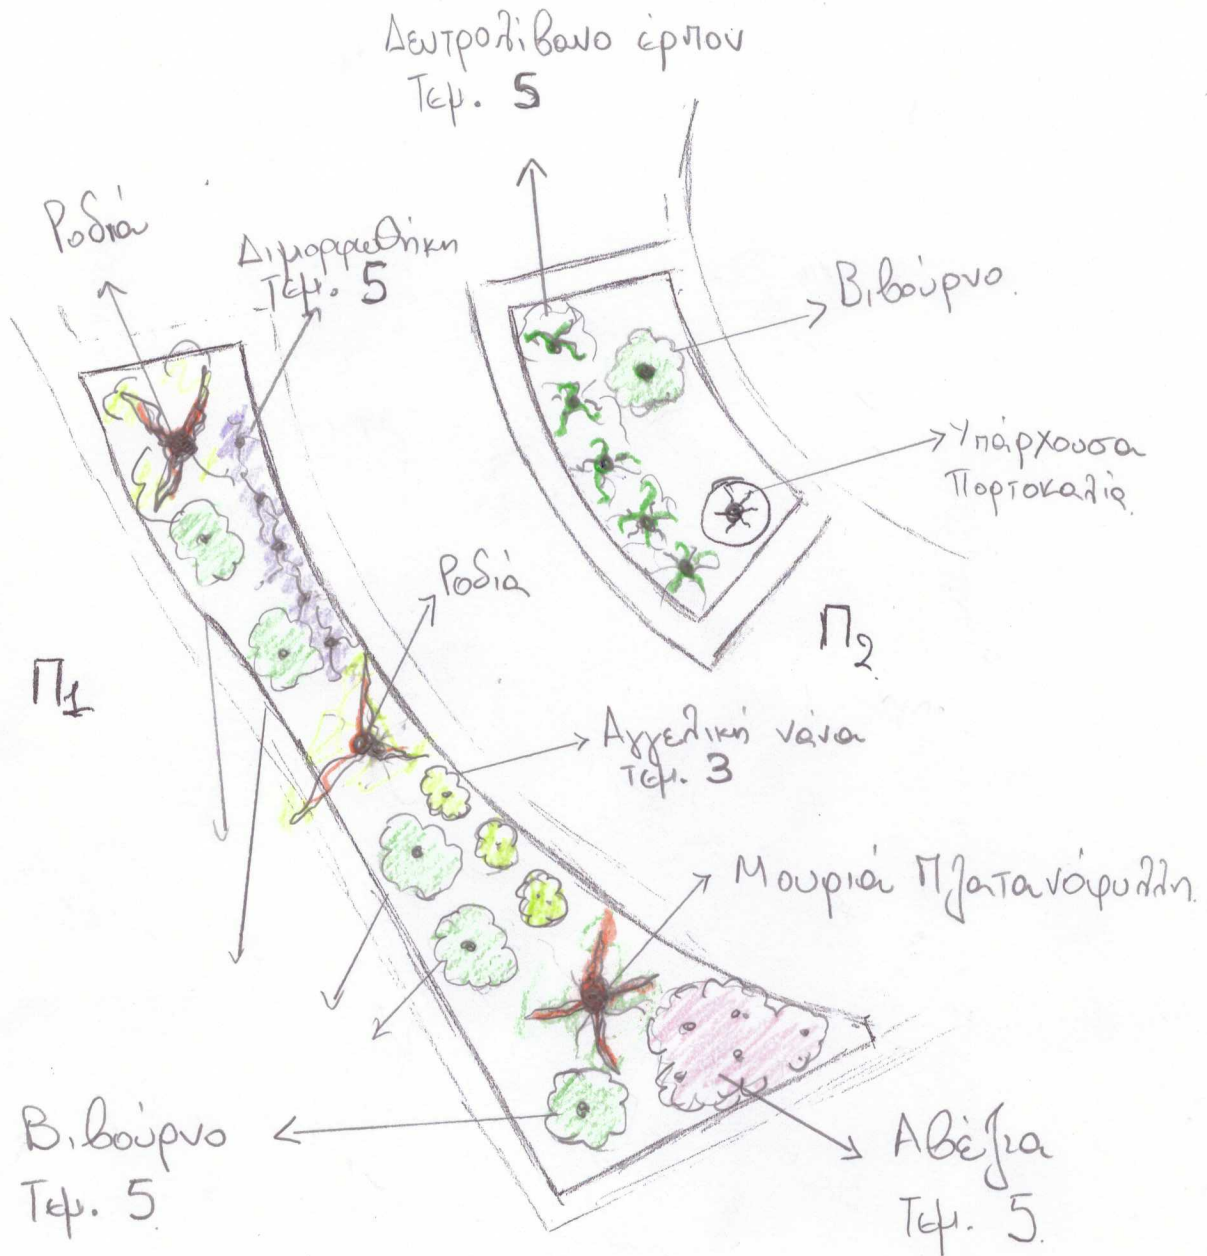 Δεντρολίβανο έρπον
Τεμ. 5
Ροδιά
Διμορφωθήκη
Τεμ. 5
Βιβούρνο.
Υπάρχουσα
Πορτοκαλιά.
Ροδιά
Π1
Π2
Αγγελική νάνα
τεμ. 3
Μουριά Πλατανόφυλλη.
Βιβούρνο
Τεμ. 5
Αβέλια
Τεμ. 5